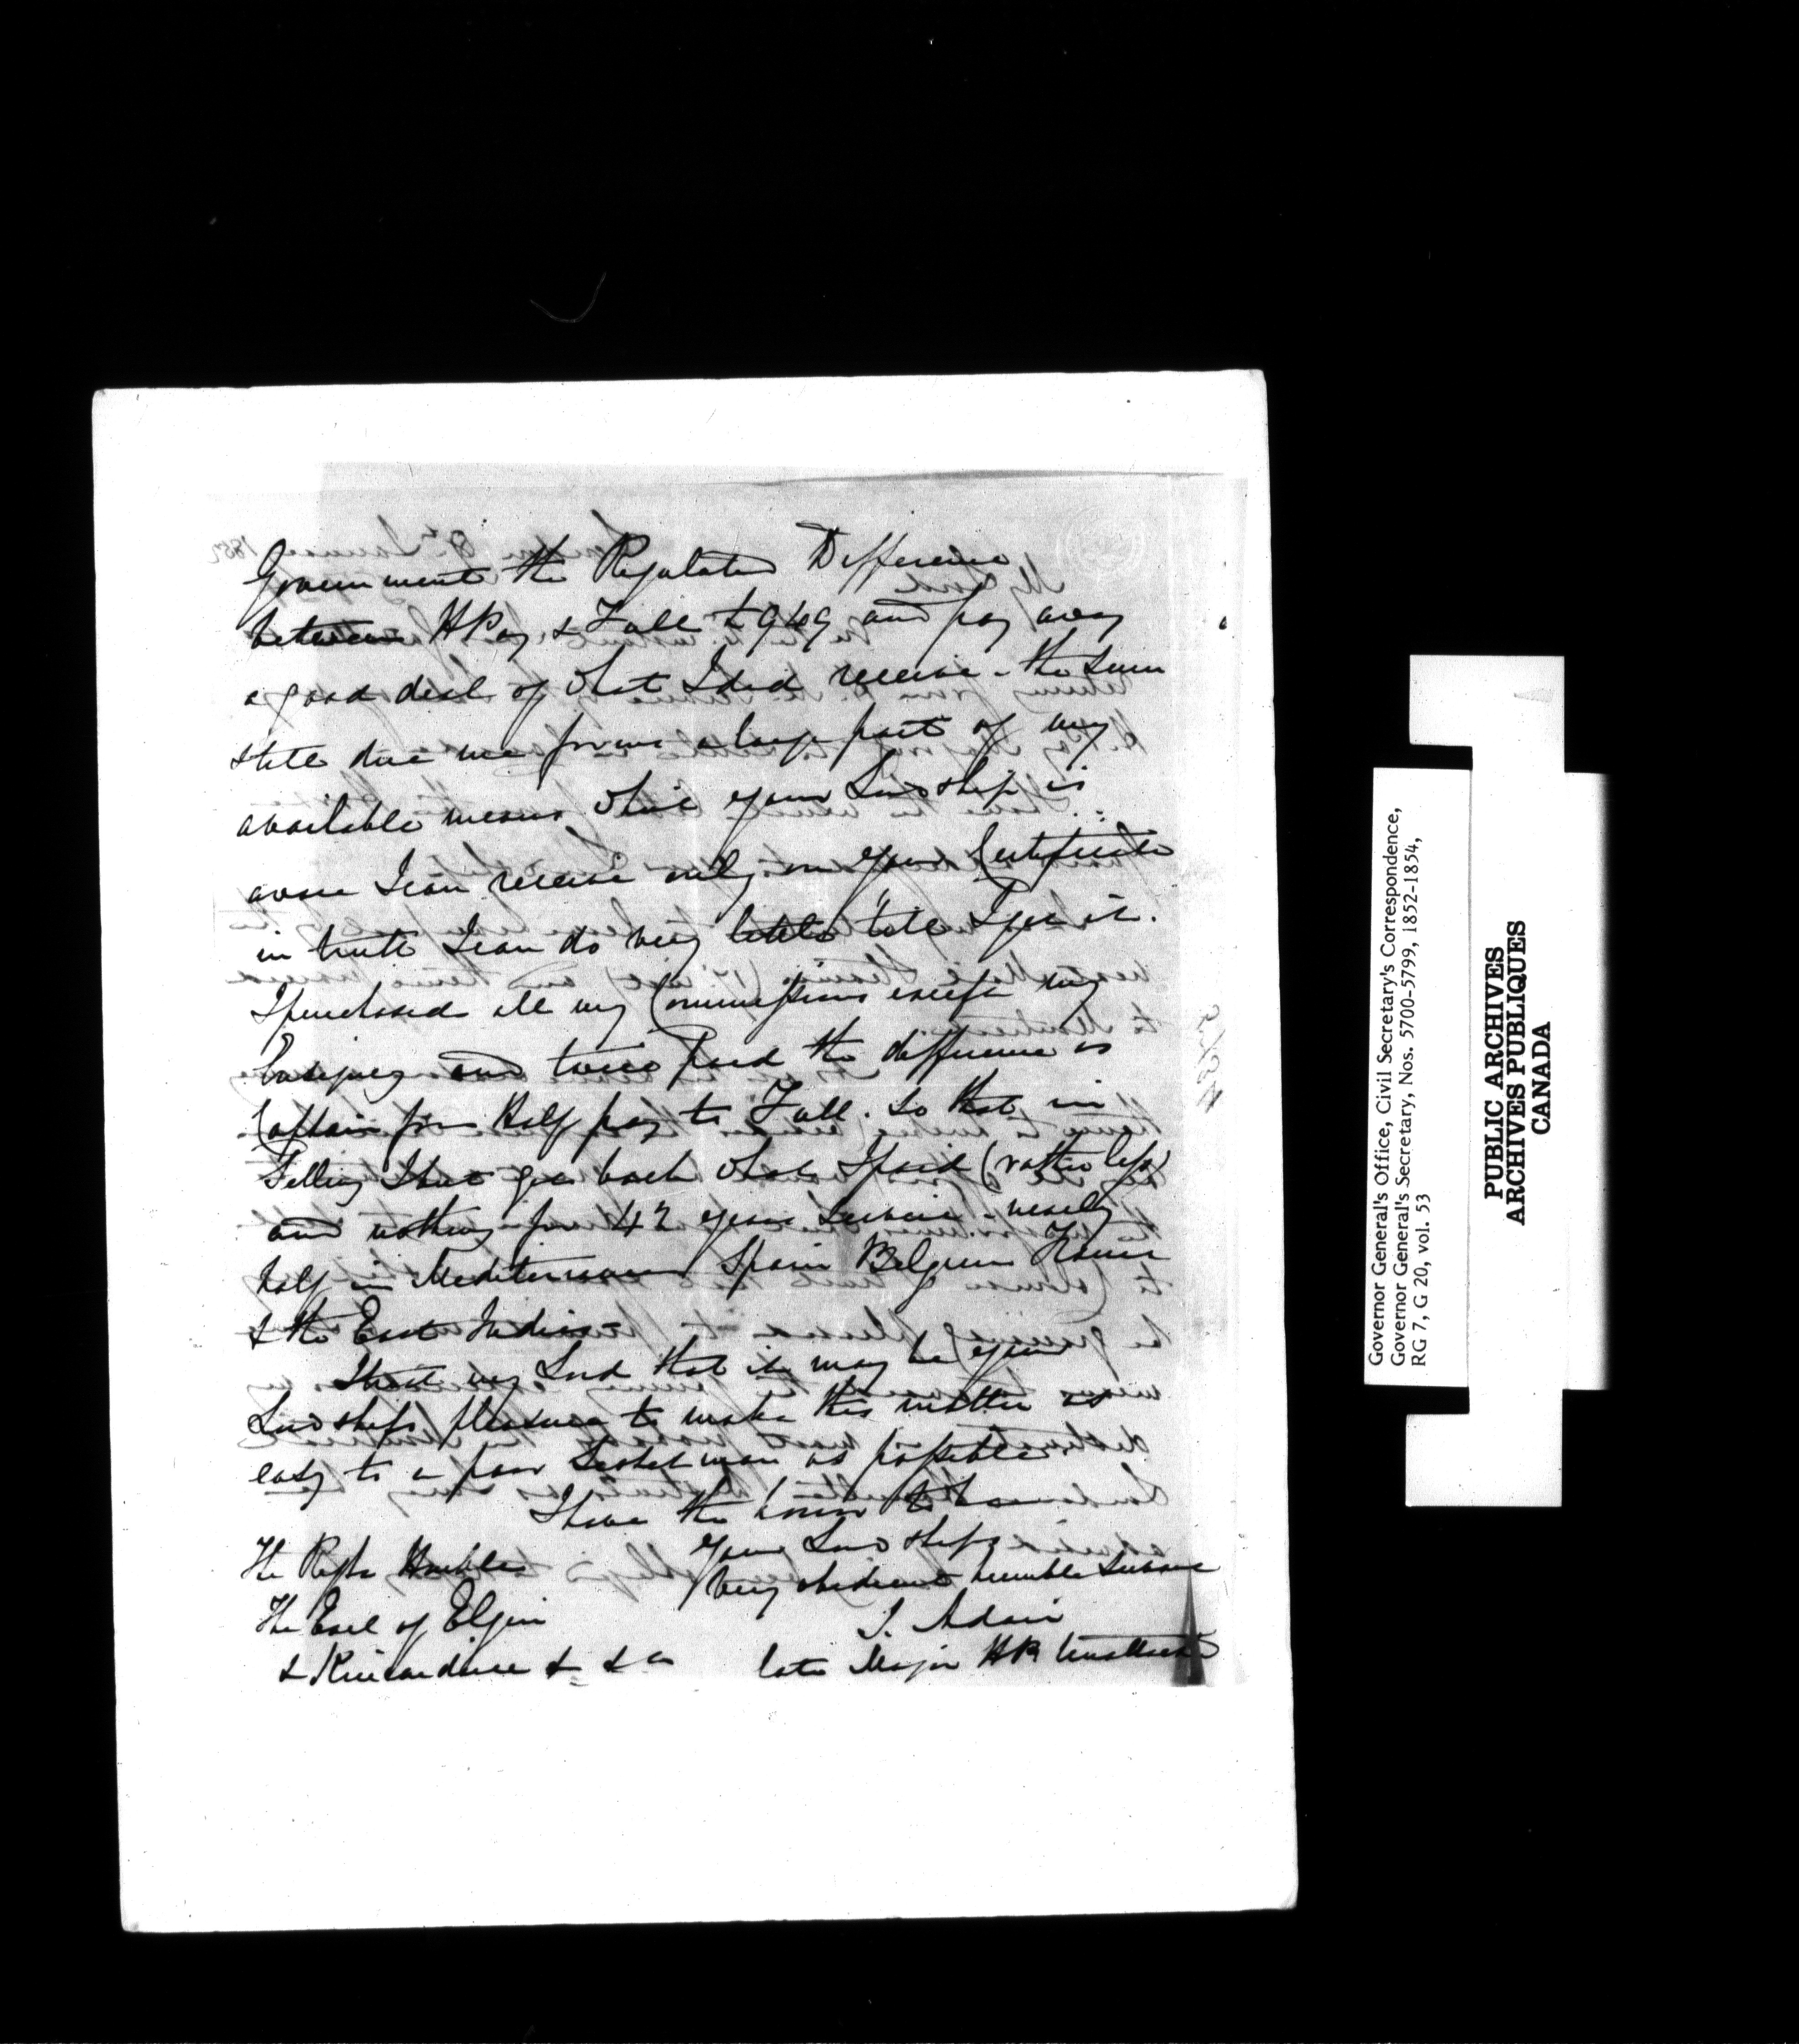 Government the Regulated Difference
between HPay & Full £949 and pay away
a good deal of what I did receive - the sum
still due me forms a large part of my
available means which your Lordship is
aware I can receive only on your Certificate
in truth I can do very little till I get it.
I purchased all my Commissions except my
Ensigncy and twice paid the difference as
Captain from Half pay to Full. So that in
Selling I have got back what I paid (rather less)
and nothing for 42 years Service - nearly
half in Mediterranean Spain Belgium France
& the East Indies
I trust my Lord that it may be your
Lordships pleasure to make this matter as
easy to a poor Scotchman as possible
I have the honor to be
Your Lordships
Very obedient humble Servant
The Right Honble
The Earl of Elgin
J. Adair
& Kincardine & & &c
late Major HP Unattached
Governor General's Office, Civil Secretary's Correspondence,
Governor General's Secretary, Nos. 5700-5799, 1852-1854,
RG 7, G 20, vol. 53
PUBLIC ARCHIVES
ARCHIVES PUBLIQUES
CANADA